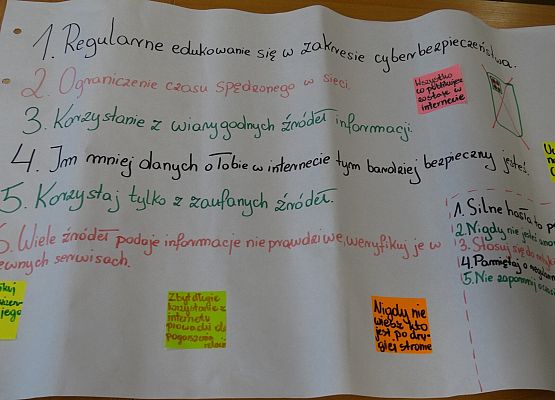 1. Regularne edukowanie się w zakresie cyberbezpieczeństwa.
2. Ograniczenie czasu spędzonego w sieci.
Wszystko
co publikujesz
zostaje w
internecie
3. Korzystanie z wiarygodnych źródeł informacji.
4. Im mniej danych o Tobie w internecie tym bardziej bezpieczny jesteś.
5. Korzystaj tylko z zaufanych źródeł.
6. Wiele źródeł podaje informacje nie prawdziwe, weryfikuj je w
pewnych serwisach.
1. Silne hasła to
2. Nigdy nie jesteś
3. Stosuj się do
4. Pamiętaj o
5. Nie zapomnij o
jego
Zbyt długie
korzystanie z
internetu
prowadzi do
pogorszenia
relacji
Nigdy nie
wiesz kto
jest po dru-
giej stronie